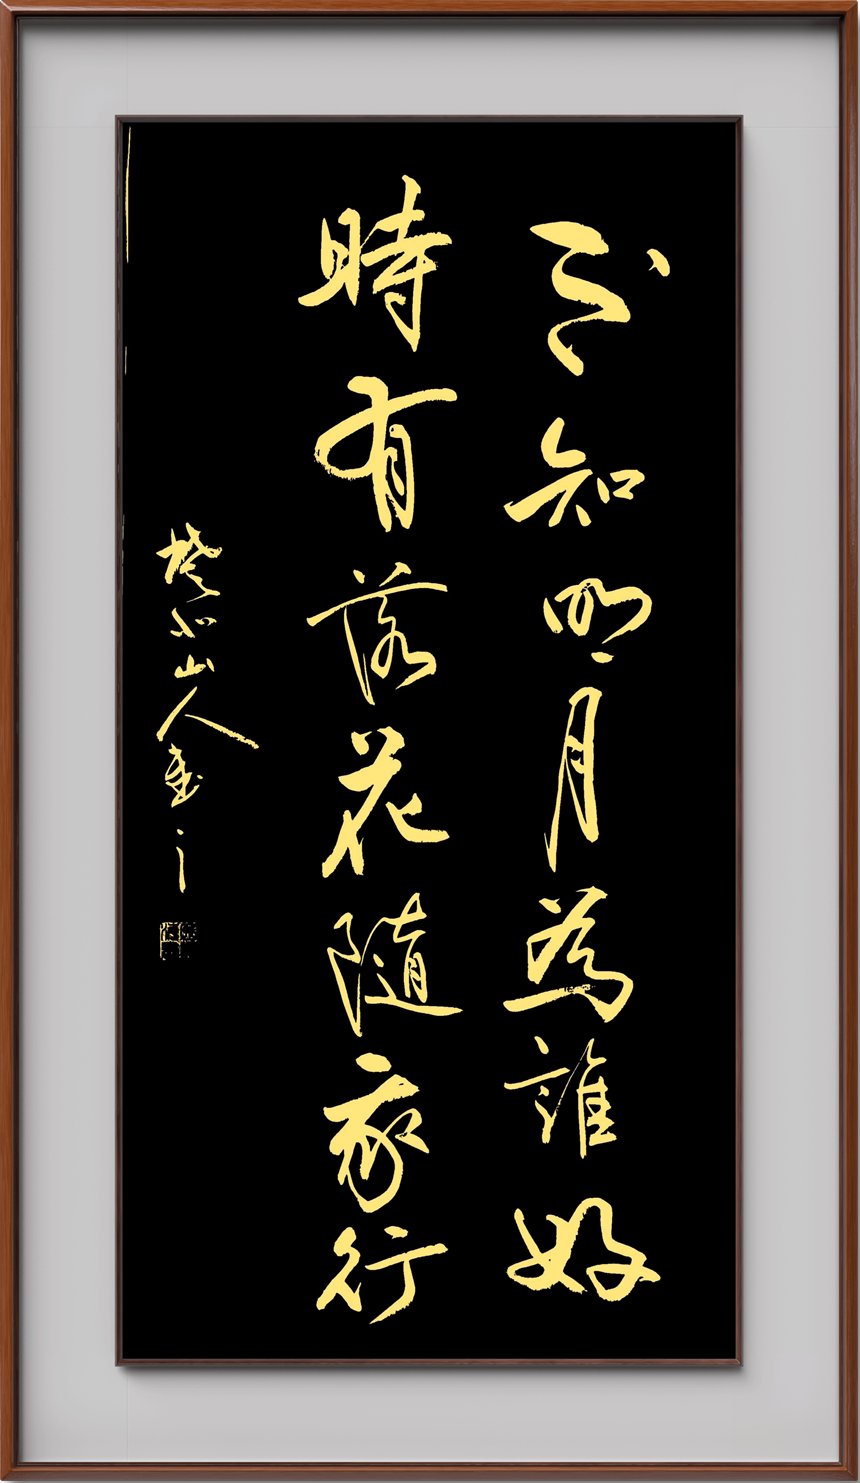 不知明月為誰好
時有落花隨我行
山人書